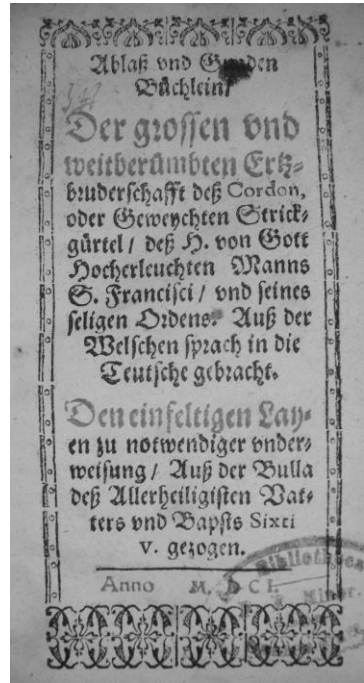 Ablaß vnd Gnaden
Büchlein/
Der grossen vnd
weitberümbten Ertz-
bruderschafft deß Cordon,
oder Geweychten Strick-
gürtel / deß H. von Gott
Hocherleuchten Manns
S. Francisci / vnd seines
seligen Ordens. Auß der
Welschen sprach in die
Teutsche gebracht.
Den einfeltigen Lay-
en zu notwendiger vnder-
weisung / Auß der Bulla
deß Allerheiligisten Vat-
ters vnd Bapsts Sixti
V. gezogen.
Anno M. DCI.
Bibliothec
Minor.